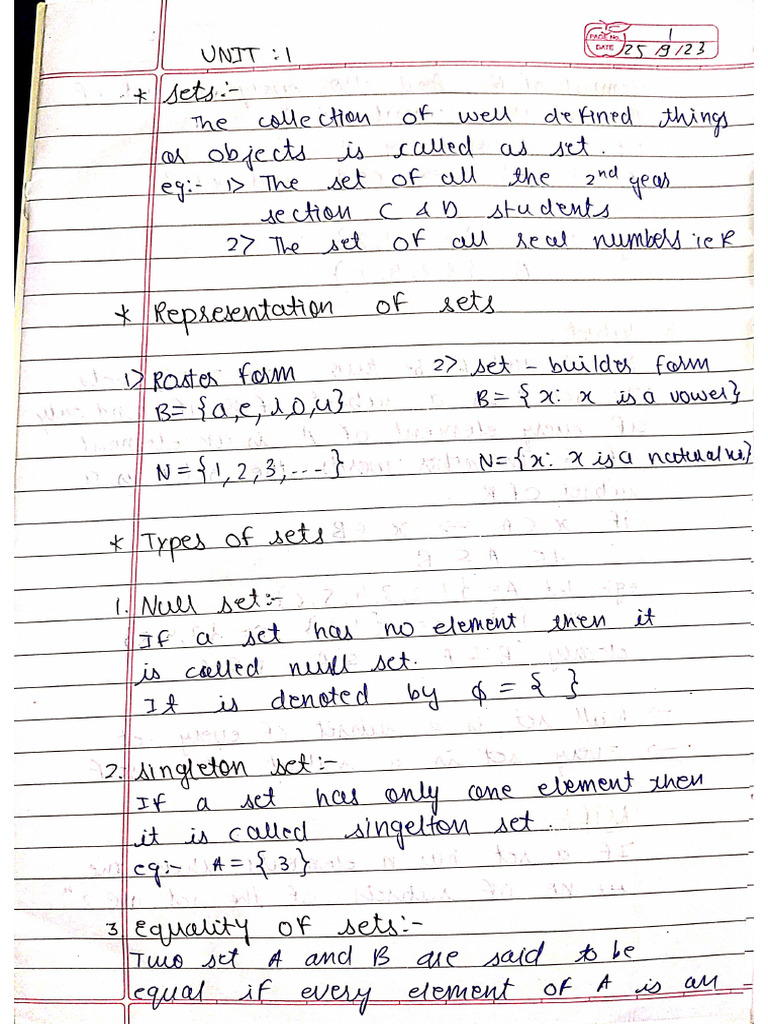 UNIT : 1
PAGE No. 1
DATE 25/9/23
* Sets:-
The collection of well defined things
or objects is called as set.
eg:- 1> The set of all the 2nd year
section C & D students
2> The set of all real numbers i.e R
* Representation of sets
1> Roster form 2> set - builder form
B = {a, e, i, o, u} B = {x: x is a vowel}
N = {1, 2, 3, ....} N = {x: x is a natural no.}
* Types of sets
1. Null set:-
If a set has no element then it
is called null set.
It is denoted by ϕ = { }
2. Singleton set:-
If a set has only one element then
it is called singelton set.
eg:- A = { 3 }
3 Equality of sets:-
Two set A and B are said to be
equal if every element of A is an